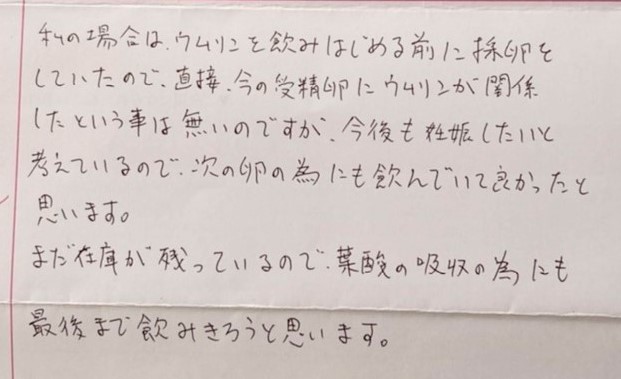 私の場合は、ウムリンを飲みはじめる前に採卵を
していたので、直接、今の受精卵にウムリンが関係
したという事は無いのですが、今後も妊娠したいと
考えているので、次の卵の為にも飲んでいて良かったと
思います。
まだ在庫が残っているので、葉酸の吸収の為にも
最後まで飲みきろうと思います。